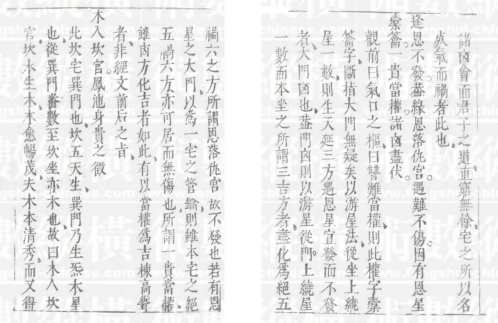 諸凶會而君子之道重窮無餘宅之所以名
殺氣而禍者此也
逢恩不發蓋緣恩落仇宮遇難不傷因有恩星
一貴當權諸凶盡伏
觀前曰氣口之樞曰雙難當權則此權字
簷字樞指大門無疑矣以游星法從坐上繞
星一數則生天延三方遇恩星宜發而不發
者大門凶也並門凶則以游星從門上繞星
一數而本坐之所謂三吉方者盡化為絕五
禍六之方所謂恩落仇宮故不發也若有恩
星之大門以為一宅之管籥則雖本宅之絕
五禍六方亦可居而無傷也所謂一貴當權
雖凶方化吉者如此有以當權為吉棟高聳
者非經文前后之旨
木入坎宮鳳池身貴之徵
此坎宅巽門也坎五天生巽門乃生炁木星
也從巽門番數至坎坐亦木也故曰木入坎
宮坎水生木木愈暢茂夫木本清秀而又得